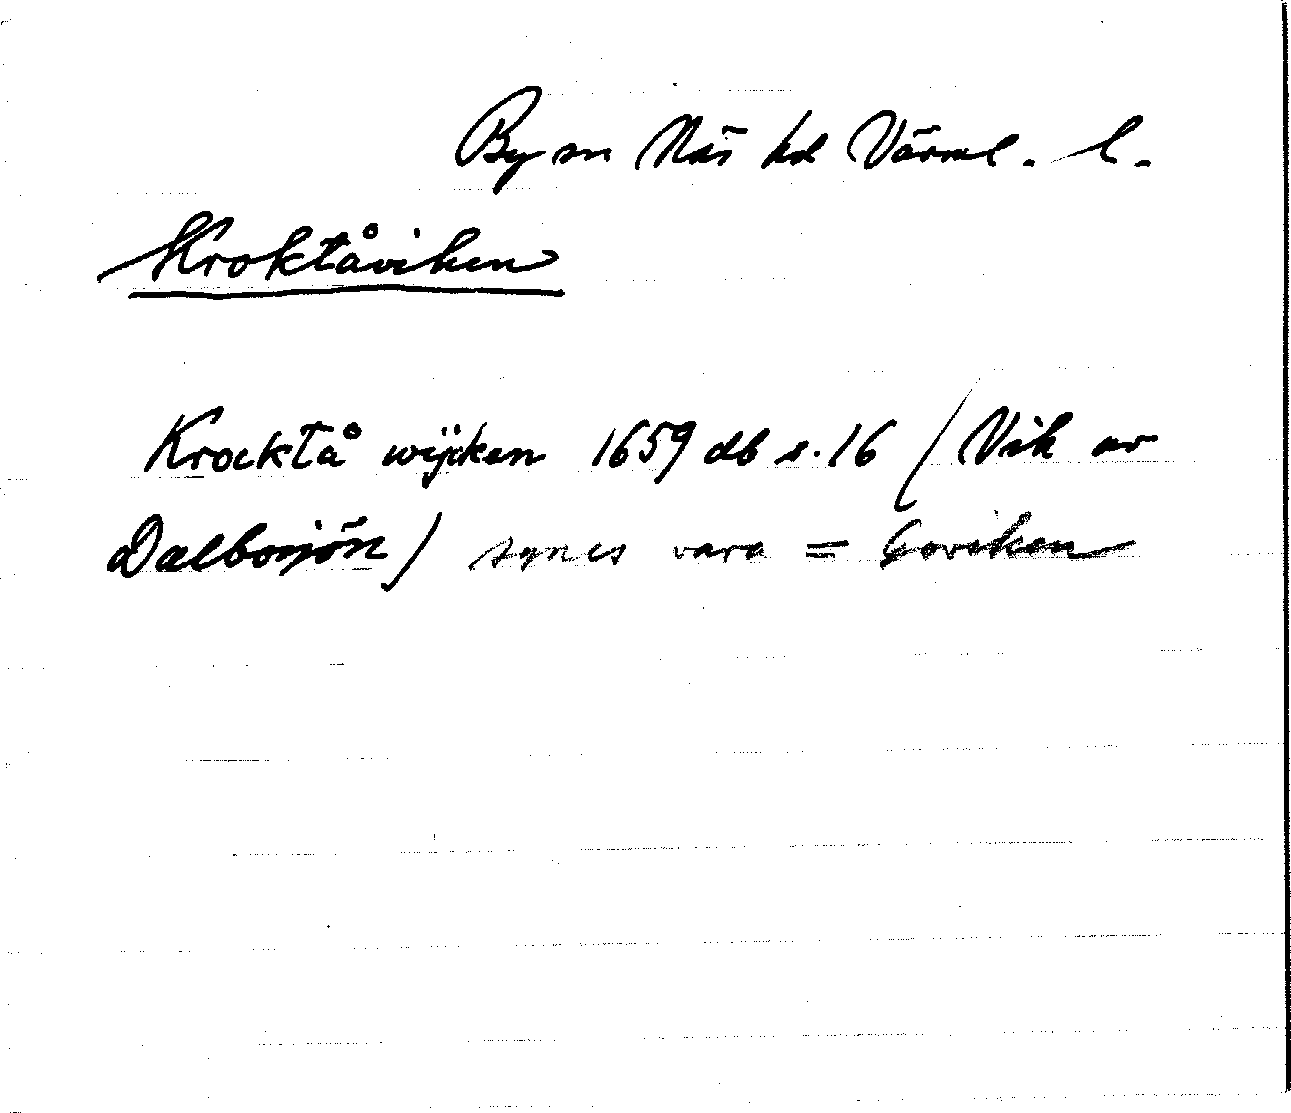 By sn Näs hd Värml. l.
Kroktåviken
Krocktå wijcken 1659 db s. 16 (Vik av
Dalbosjön) synes vara = Goviken